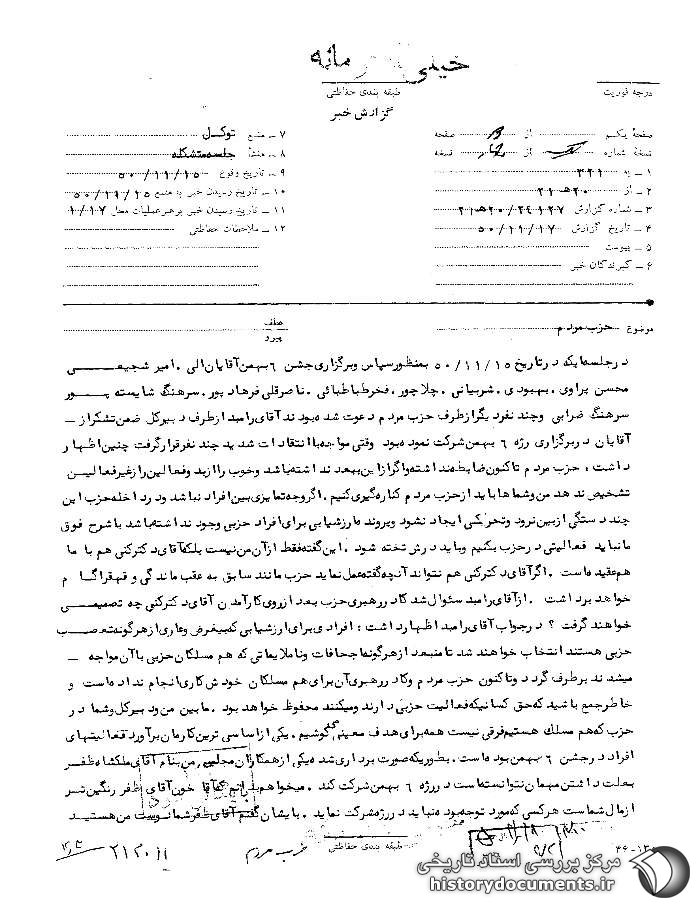 خیلی محرمانه
طبقه بندی حفاظتی
درجه فوریت
گزارش خبر
صفحهٔ یکم از صفحه
نسخهٔ شماره از نسخه
۱ - به ۳۲۱
۲ - از ۲۰ه۲۱
۳ - شماره گزارش ۲۰/۲۴۱۲۷ه۲۱
۴ - تاریخ گزارش ۵۰/۱۱/۱۷
۵ - پیوست
۶ - گیرندگان خبر
۷ - منبع توکل
۸ - منشأ جلسه متشکله
۹ - تاریخ وقوع ۵۰/۱۱/۱۵
۱۰ - تاریخ رسیدن خبر به منبع ۵۰/۱۱/۱۵
۱۱ - تاریخ رسیدن خبر برهبر عملیات محل ۱/۱۷
۱۲ - ملاحظات حفاظتی
موضوع حزب مردم
عطف
پیرو
در جلسه‌ایکه در تاریخ ۵۰/۱۱/۱۵ بمنظور سپاس و برگزاری جشن ۶ بهمن آقایان الی . امیر شجیعی
محسن پراوی . بهبودی . شربیانی . چلاچور . فخر طباطبائی . ناصرقلی فرهادپور . سرهنگ شایسته پور
سرهنگ ضرابی و چند نفر دیگر از طرف حزب مردم دعوت شده بودند آقای رامبد از طرف دبیرکل ضمن تشکر از -
آقایان در برگزاری رژه ۶ بهمن شرکت نموده بود وقتی مواجه با انتقادات شدید چند نفر قرار گرفت چنین اظهار
داشت : حزب مردم تاکنون ضابطه نداشته و اگر از این ببعد نداشته باشد و خوب را از بد و فعالین را از غیر فعالین
تشخیص ندهد من و شماها باید از حزب مردم کناره گیری کنیم . اگر وجه تمایزی بین افراد نباشد و در داخله حزب این
چند دستگی از بین نرود و تحرکی ایجاد نشود و پرونده ارزشیابی برای افراد حزبی وجود نداشته باشد با شرح فوق
ما نباید فعالیتی در حزب بکنیم و باید درش تخته شود . این گفته فقط از آن من نیست بلکه آقای دکتر کنی هم با ما
هم عقیده است . اگر آقای دکتر کنی هم نتواند آنچه گفته عمل نماید حزب مانند سابق به عقب ماندگی و قهقرا گام
خواهد برداشت . از آقای رامبد سئوال شد کادر رهبری حزب بعد از روی کار آمدن آقای دکتر کنی چه تصمیمی
خواهند گرفت ؟ در جواب آقای رامبد اظهار داشت : افرادی برای ارزشیابی که بیغرض و عاری از هرگونه تعصب
حزبی هستند انتخاب خواهند شد تا منبعد از هرگونه اجحافات و ناملایماتی که هم مسلکان حزبی با آن مواجه -
میشدند برطرف گردد و تاکنون حزب مردم و کادر رهبری آن برای هم مسلکان خودش کاری انجام نداده است و
خاطر جمع باشید که حق کسانیکه فعالیت حزبی دارند و میکنند محفوظ خواهد بود . ما بین من و دبیرکل و شما در
حزب که هم مسلک هستیم فرقی نیست همه برای هدف معینی میکوشیم . یکی از اساسی ترین کارمان برآورد فعالیتهای
افراد در جشن ۶ بهمن بوده است . بطوریکه صورت برداری شده یکی از همکاران مجلسی من بنام آقای ملکشاه ظفر
بعلت داشتن مهمان نتوانسته است در رژه ۶ بهمن شرکت کند . میخواهم بدانم که آقا خون آقای ظفر رنگین تر
از مال شماست هر کسی که مورد توجه بوده نباید در رژه شرکت نماید . بایشان گفتم آقای ظفر شما دوست من هستید
طبقه بندی حفاظتی
حزب مردم
مرکز بررسی اسناد تاریخی
historydocuments.ir